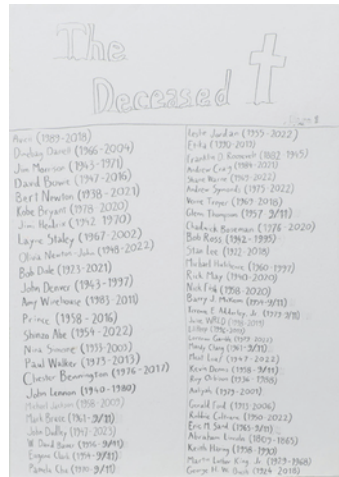 The
Deceased
Avicii (1989-2018)
Dimebag Darrell (1966-2004)
Jim Morrison (1943-1971)
David Bowie (1947-2016)
Bert Newton (1938-2021)
Kobe Bryant (1978-2020)
Jimi Hendrix (1942-1970)
Layne Staley (1967-2002)
Olivia Newton-John (1948-2022)
Bob Dole (1923-2021)
John Denver (1943-1997)
Amy Winehouse (1983-2011)
Prince (1958-2016)
Shinzo Abe (1954-2022)
Nina Simone (1933-2003)
Paul Walker (1973-2013)
Chester Bennington (1976-2017)
John Lennon (1940-1980)
Michael Jackson (1958-2009)
Mark Bruce (1961-9/11)
John Dudley (1947-2023)
W. David Bauer (1956-9/11)
Eugene Clark (1954-9/11)
Pamela Chu (1970-9/11)
Leslie Jordan (1955-2022)
Franklin D. Roosevelt (1882-1945)
Andrew Craig (1984-2021)
Shane Warne (1969-2022)
Andrew Symonds (1975-2022)
Verne Troyer (1969-2018)
Glenn Thompson (1957-9/11)
Chadwick Boseman (1976-2020)
Bob Ross (1942-1995)
Stan Lee (1922-2018)
Michael Hutchence (1960-1997)
Rick May (1940-2020)
(1958-2020)
Barry J. McKeon (1954-9/11)
Terence E. Adderley, Jr. (1979-9/11)
Juice WRLD (1998-2019)
Lil Peep (1996-2017)
Mandy Chang (1961-9/11)
Meat Loaf (1947-2022)
Kevin Dennis (1958-9/11)
Roy Orbison (1936-1988)
Aaliyah (1979-2001)
Gerald Ford (1913-2006)
Robbie Coltrane (1950-2022)
Eric M. Sand (1965-9/11)
Abraham Lincoln (1809-1865)
Keith Haring (1958-1990)
Martin Luther King Jr. (1929-1968)
George H. W. Bush (1924-2018)